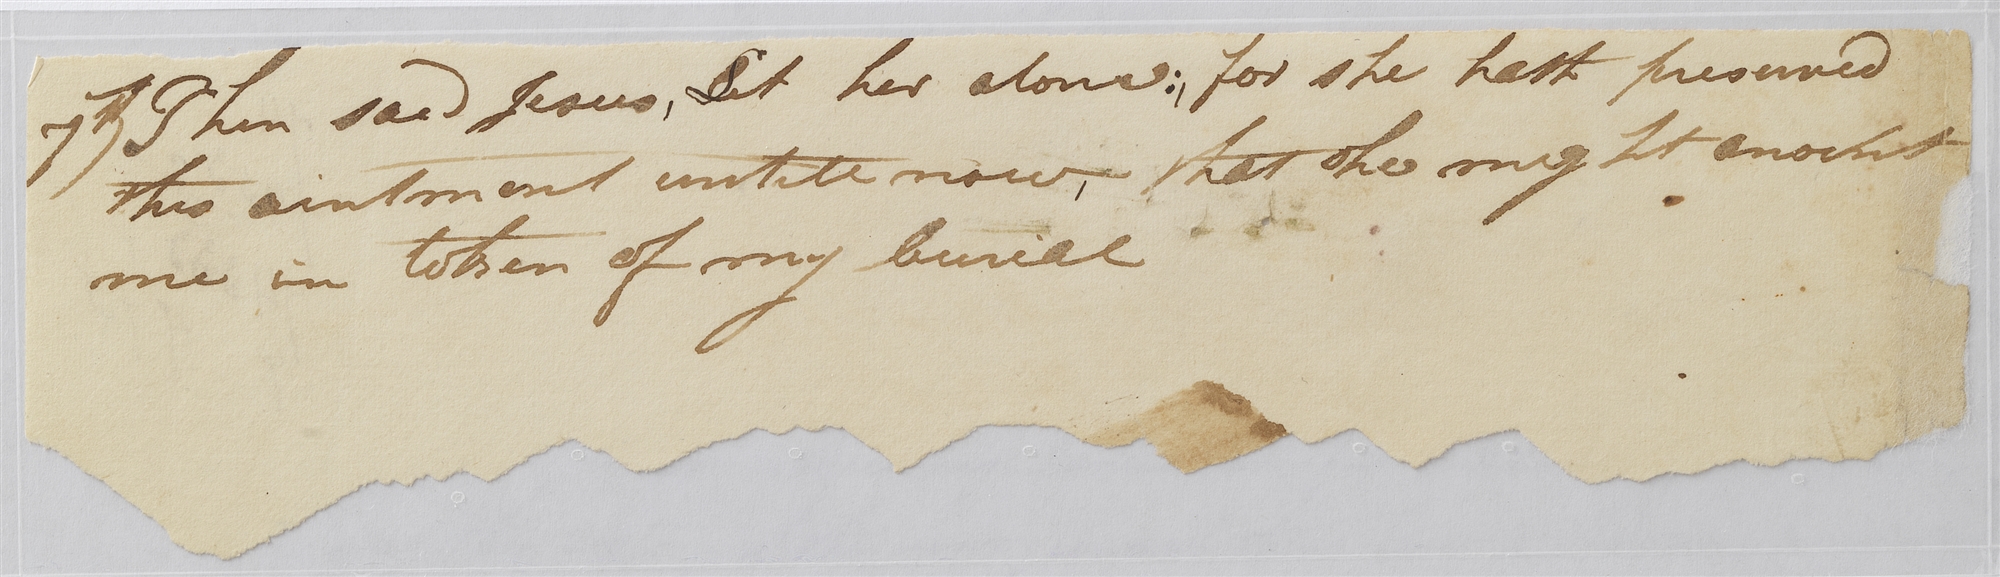 7th) Then said Jesus, Let her alone:, for she hath preserved
this ointment untill now, that she might anoint
me in token of my burial